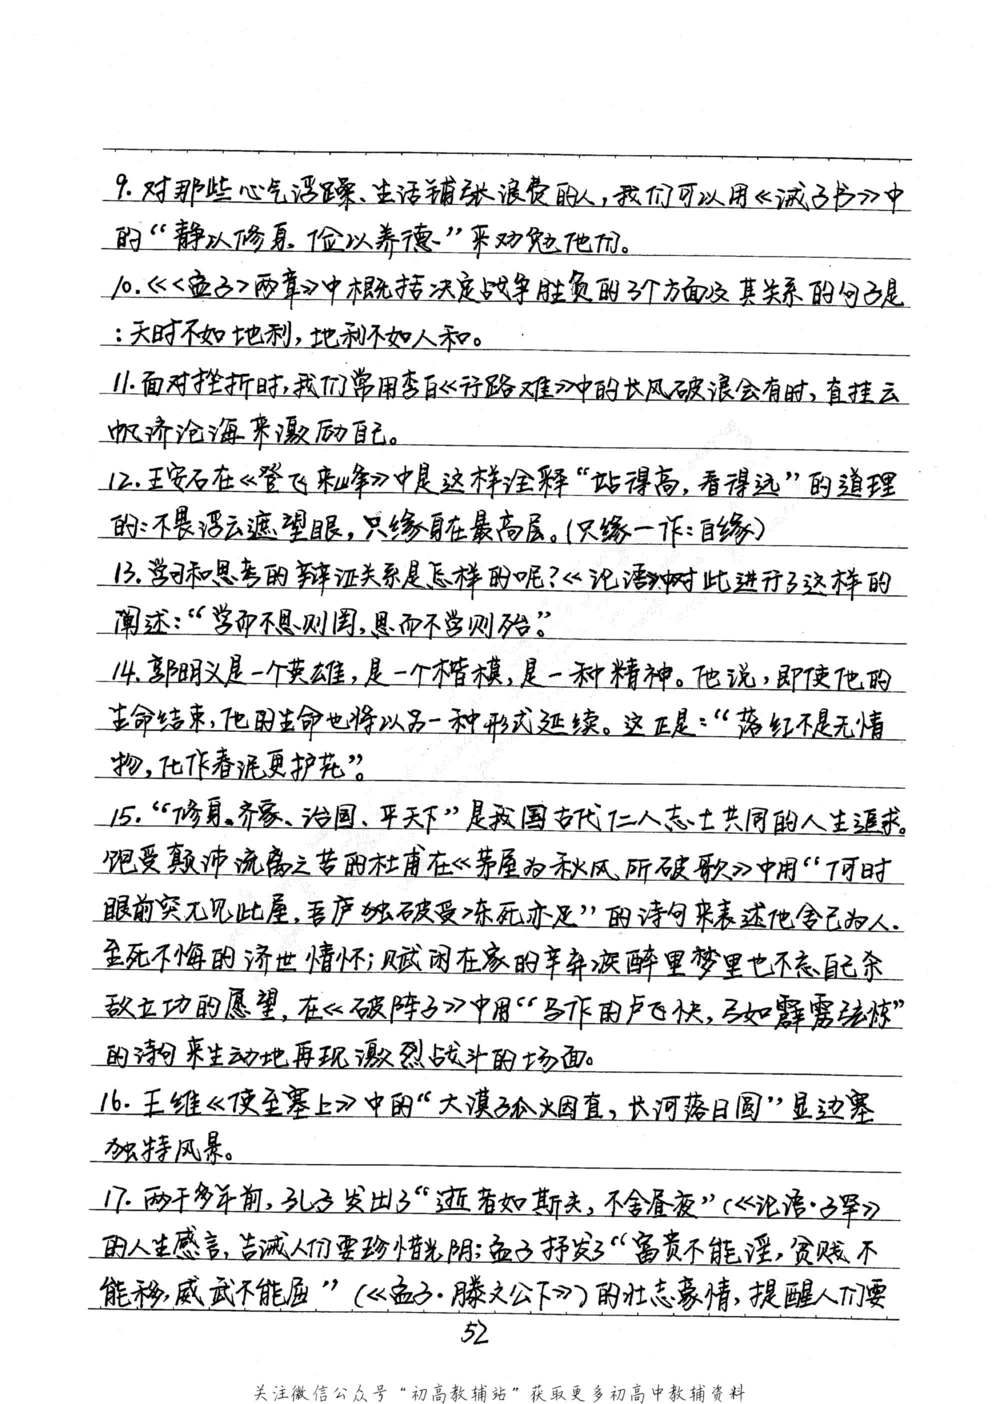 9.对那些心气浮躁、生活铺张浪费的人，我们可以用《诫子书》中
的“静以修身，俭以养德”来劝勉他们。
10.《<孟子>两章》中概括决定战争胜负的3个方面及其关系的句子是
：天时不如地利，地利不如人和。
11.面对挫折时，我们常用李白《行路难》中的长风破浪会有时，直挂云
帆济沧海来激励自己。
12.王安石在《登飞来峰》中是这样诠释“站得高，看得远”的道理
的：不畏浮云遮望眼，只缘身在最高层。（只缘一作：自缘）
13.学习和思考的辩证关系是怎样的呢？《论语》中对此进行了这样的
阐述：“学而不思则罔，思而不学则殆”。
14.郭明义是一个英雄，是一个楷模，是一种精神。他说，即使他的
生命结束，他的生命也将以另一种形式延续。这正是：“落红不是无情
物，化作春泥更护花”。
15.“修身、齐家、治国、平天下”是我国古代仁人志士共同的人生追求。
饱受颠沛流离之苦的杜甫在《茅屋为秋风所破歌》中用“何时
眼前突兀见此屋，吾庐独破受冻死亦足”的诗句来表述他舍己为人、
至死不悔的济世情怀；赋闲在家的辛弃疾醉里梦里也不忘自己杀
敌立功的愿望，在《破阵子》中用“马作的卢飞快，弓如霹雳弦惊”
的诗句来生动地再现激烈战斗的场面。
16.王维《使至塞上》中的“大漠孤烟直，长河落日圆”显边塞
独特风景。
17.两千多年前，孔子发出了“逝者如斯夫，不舍昼夜”（《论语·子罕》
的人生感言，告诫人们要珍惜光阴；孟子抒发了“富贵不能淫，贫贱不
能移，威武不能屈”（《孟子·滕文公下》）的壮志豪情，提醒人们要
52
关注微信公众号“初高教辅站”获取更多初高中教辅资料